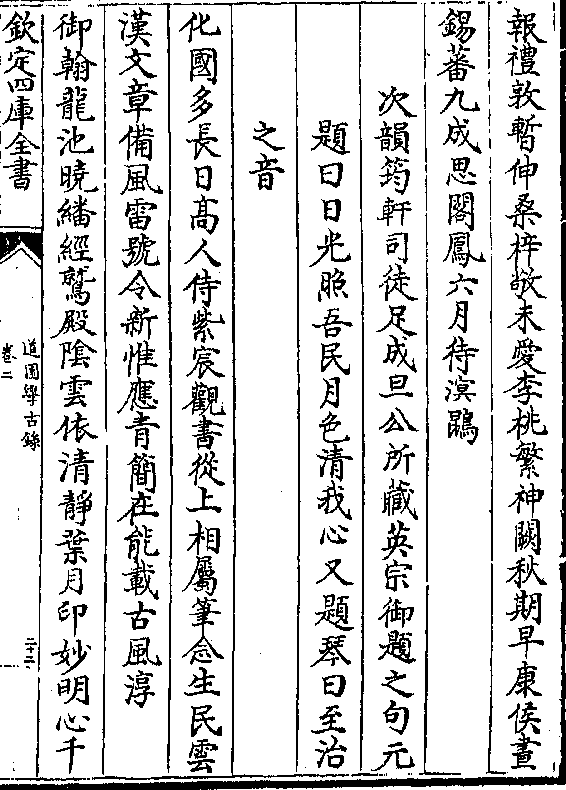 報禮敦暫伸桑梓敬未愛李桃繁神闕秋期早康侯晝
錫蕃九成思閣鳳六月待溟鵾
次韻筠軒司徒足成旦公所藏英宗御題之句元
題曰日光照吾民月色清我心又題琴曰至治
之音
化國多長日髙人侍紫宸觀書從上相屬筆念生民雲
漢文章備風雷號令新惟應青簡在能載古風淳
御翰龍池曉繙經鷲殿隂雲依清靜葉月印妙明心千
欽定四庫全書
道園學古錄
卷二
二十二